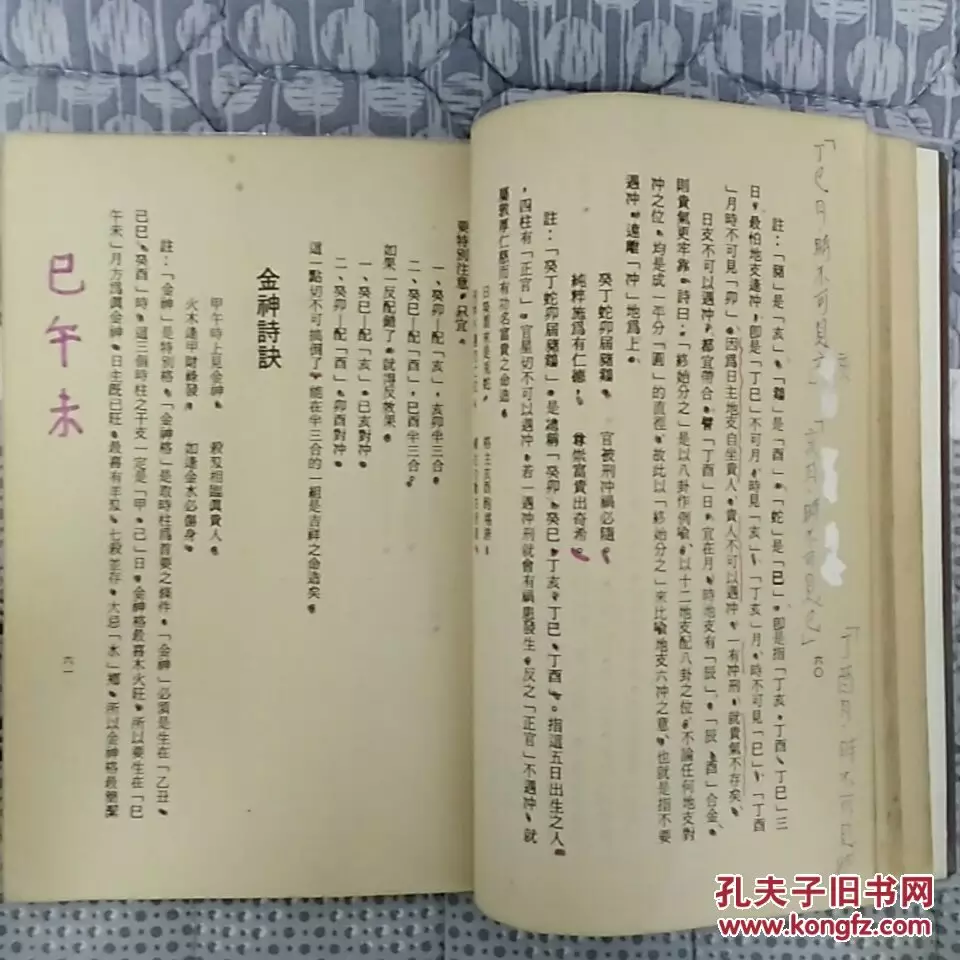 註：「豬」是「亥」、「鷄」是「酉」、「蛇」是「巳」。卽是指「丁亥，丁酉，丁巳」三
日，最怕地支逢冲，卽是「丁巳」不可月、時見「亥」，「丁亥」月、時不可見「巳」，「丁酉
」月時不可見「卯」、因爲日主地支自坐貴人，貴人不可以遇冲，一有冲刑，就貴氣不存矣，
日支不可以遇冲，都宜帶合，譬「丁酉」日，宜在月，時地支有「辰」，「辰、酉」合金，
則貴氣更牢靠，詩曰：「終始分之」是以八卦作例喩，以十二地支配八卦之位，不論任何地支對
冲之位，均是成一平分「圓」的直徑，故此以「終始分之」來比喩地支六冲之意，也就是指不要
遇冲，遠離「冲」地爲上。
癸丁蛇卯居豬鷄，官被刑冲禍必隨，
純粹施爲有仁德，尊崇富貴出奇希，
註：「癸丁蛇卯居豬鷄」是凴稱「癸卯，癸巳，丁亥，丁巳，丁酉」。指這五日出生之人
，四柱有「正官」，官星切不可以遇冲，若一遇冲刑就會有禍患發生，反之「正官」不遇冲，就
屬敦厚仁慈而有功名富貴之命造，
六〇
要特別注意，只宜，
一、癸卯—配「亥」，亥卯半三合，
二、癸巳—配「酉」，巳酉半三合，
如果一反配錯了，就得反效果，
一、癸巳—配「亥」，巳亥對冲，
二、癸卯—配「酉」，卯酉對冲，
這一點切不可搞倒了，能在半三合的一組是吉祥之命造矣，
金神詩訣
甲午時上見金神，殺刄相臨眞貴人，
火木逢甲財綘發，如逢金水必傷身，
註：「金神」是特別格，「金神格」是取時柱爲首要之條件，「金神」必須是生在「乙丑，
己巳，癸酉」時，這三個時柱之干支一定是「甲，己」日，金神格最喜木火旺，所以要生在「巳
午未」月方爲眞金神，日主旣已旺，最喜有羊刄，七殺並存，大忌「水」鄕，所以金神格最簡潔
六一
巳午未
孔夫子旧书网
www.kongfz.com